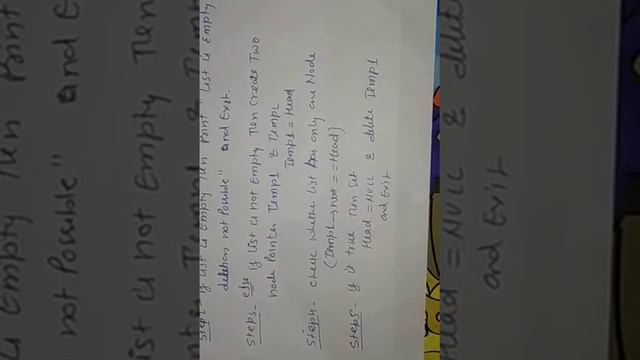 Step2- If list is Empty then Print "List is Empty
deletion not Possible" and Exit.
Step3- else If list is not Empty Then Create Two
node Pointer Temp1 & Temp2
Temp1 = Head
Step4- Check whether list has only one Node
(Temp1→next == Head)
Step5- If it true Then Set
Head = NULL & delete Temp1
and Exit